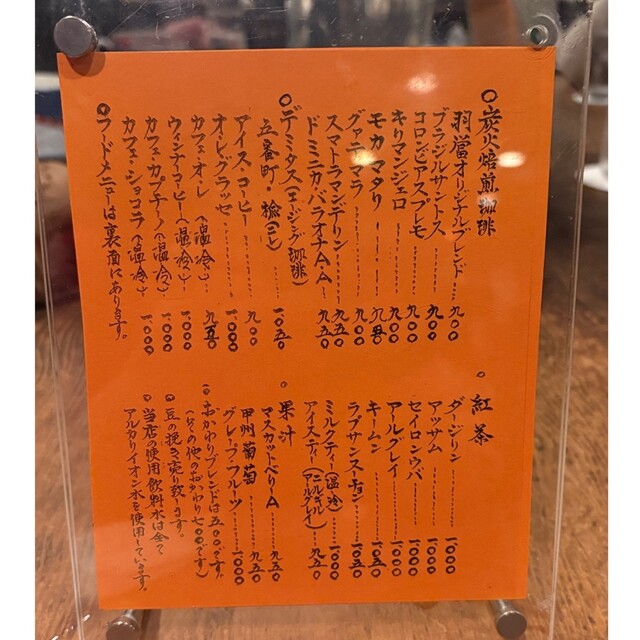 ○炭火焙煎珈琲
羽當オリジナルブレンド 九〇〇
ブラジルサントス 九〇〇
コロンビアスプレモ 九〇〇
キリマンジェロ 九〇〇
モカマタリ 九五〇
グァテマラ 九〇〇
スマトラマンデリン 九五〇
ドミニカ・バラオナA・A 九五〇
○デミタス(エージング珈琲)
五番町・楡(ニレ) 一〇五〇
アイス・コーヒー 九〇〇
オ・レ・グラッセ 一、〇〇〇
カフェ・オ・レ (温冷) 九五〇
ウィンナ・コーヒー (温冷) 一、〇〇〇
カフェ・カプチーノ (温冷) 一、〇〇〇
カフェ・ショコラ (温冷) 一、〇〇〇
○フードメニューは裏面にあります。
○紅茶
ダージリン 一〇〇〇
アッサム 一〇〇〇
セイロンウバ 一〇〇〇
アールグレイ 一〇〇〇
キームン 一〇五〇
ラプサンスーチョン 一〇五〇
ミルクティー(温冷) 一〇〇〇
アイスティー(ニルギル アールグレイ) 九五〇
○果汁
マスカットベリーA 九五〇
甲州葡萄 九五〇
グレープフルーツ 一〇〇〇
○おかわりブレンドは五〇〇です。
(その他のおかわり七〇〇です)
○豆の挽き売り致します。
○当店の使用飲料水は全て
アルカリイオン水を使用しています。